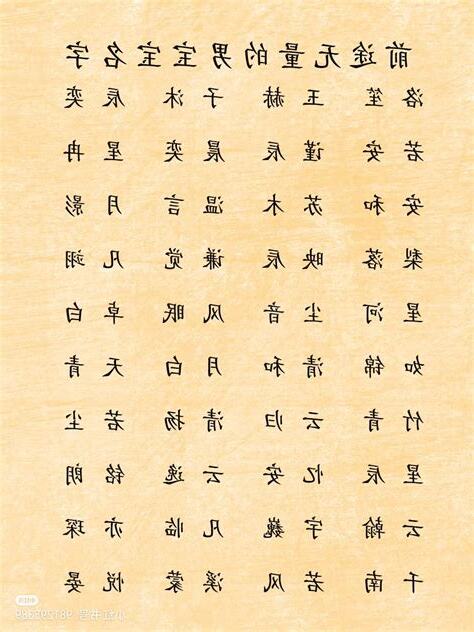 前途无量的男宝宝名字
洛笙 玉赫 子沐 辰奕
若安 谨辰 晨奕 星冉
安和 苏木 温言 月影
梨落 映辰 谦觉 凡翊
星河 尘音 风眠 卓白
如锦 清和 月白 天青
竹青 云归 清扬 若尘
星辰 忆安 云逸 铭朗
云翰 宇巍 凡临 亦琛
千南 若风 溪蒙 悦晏